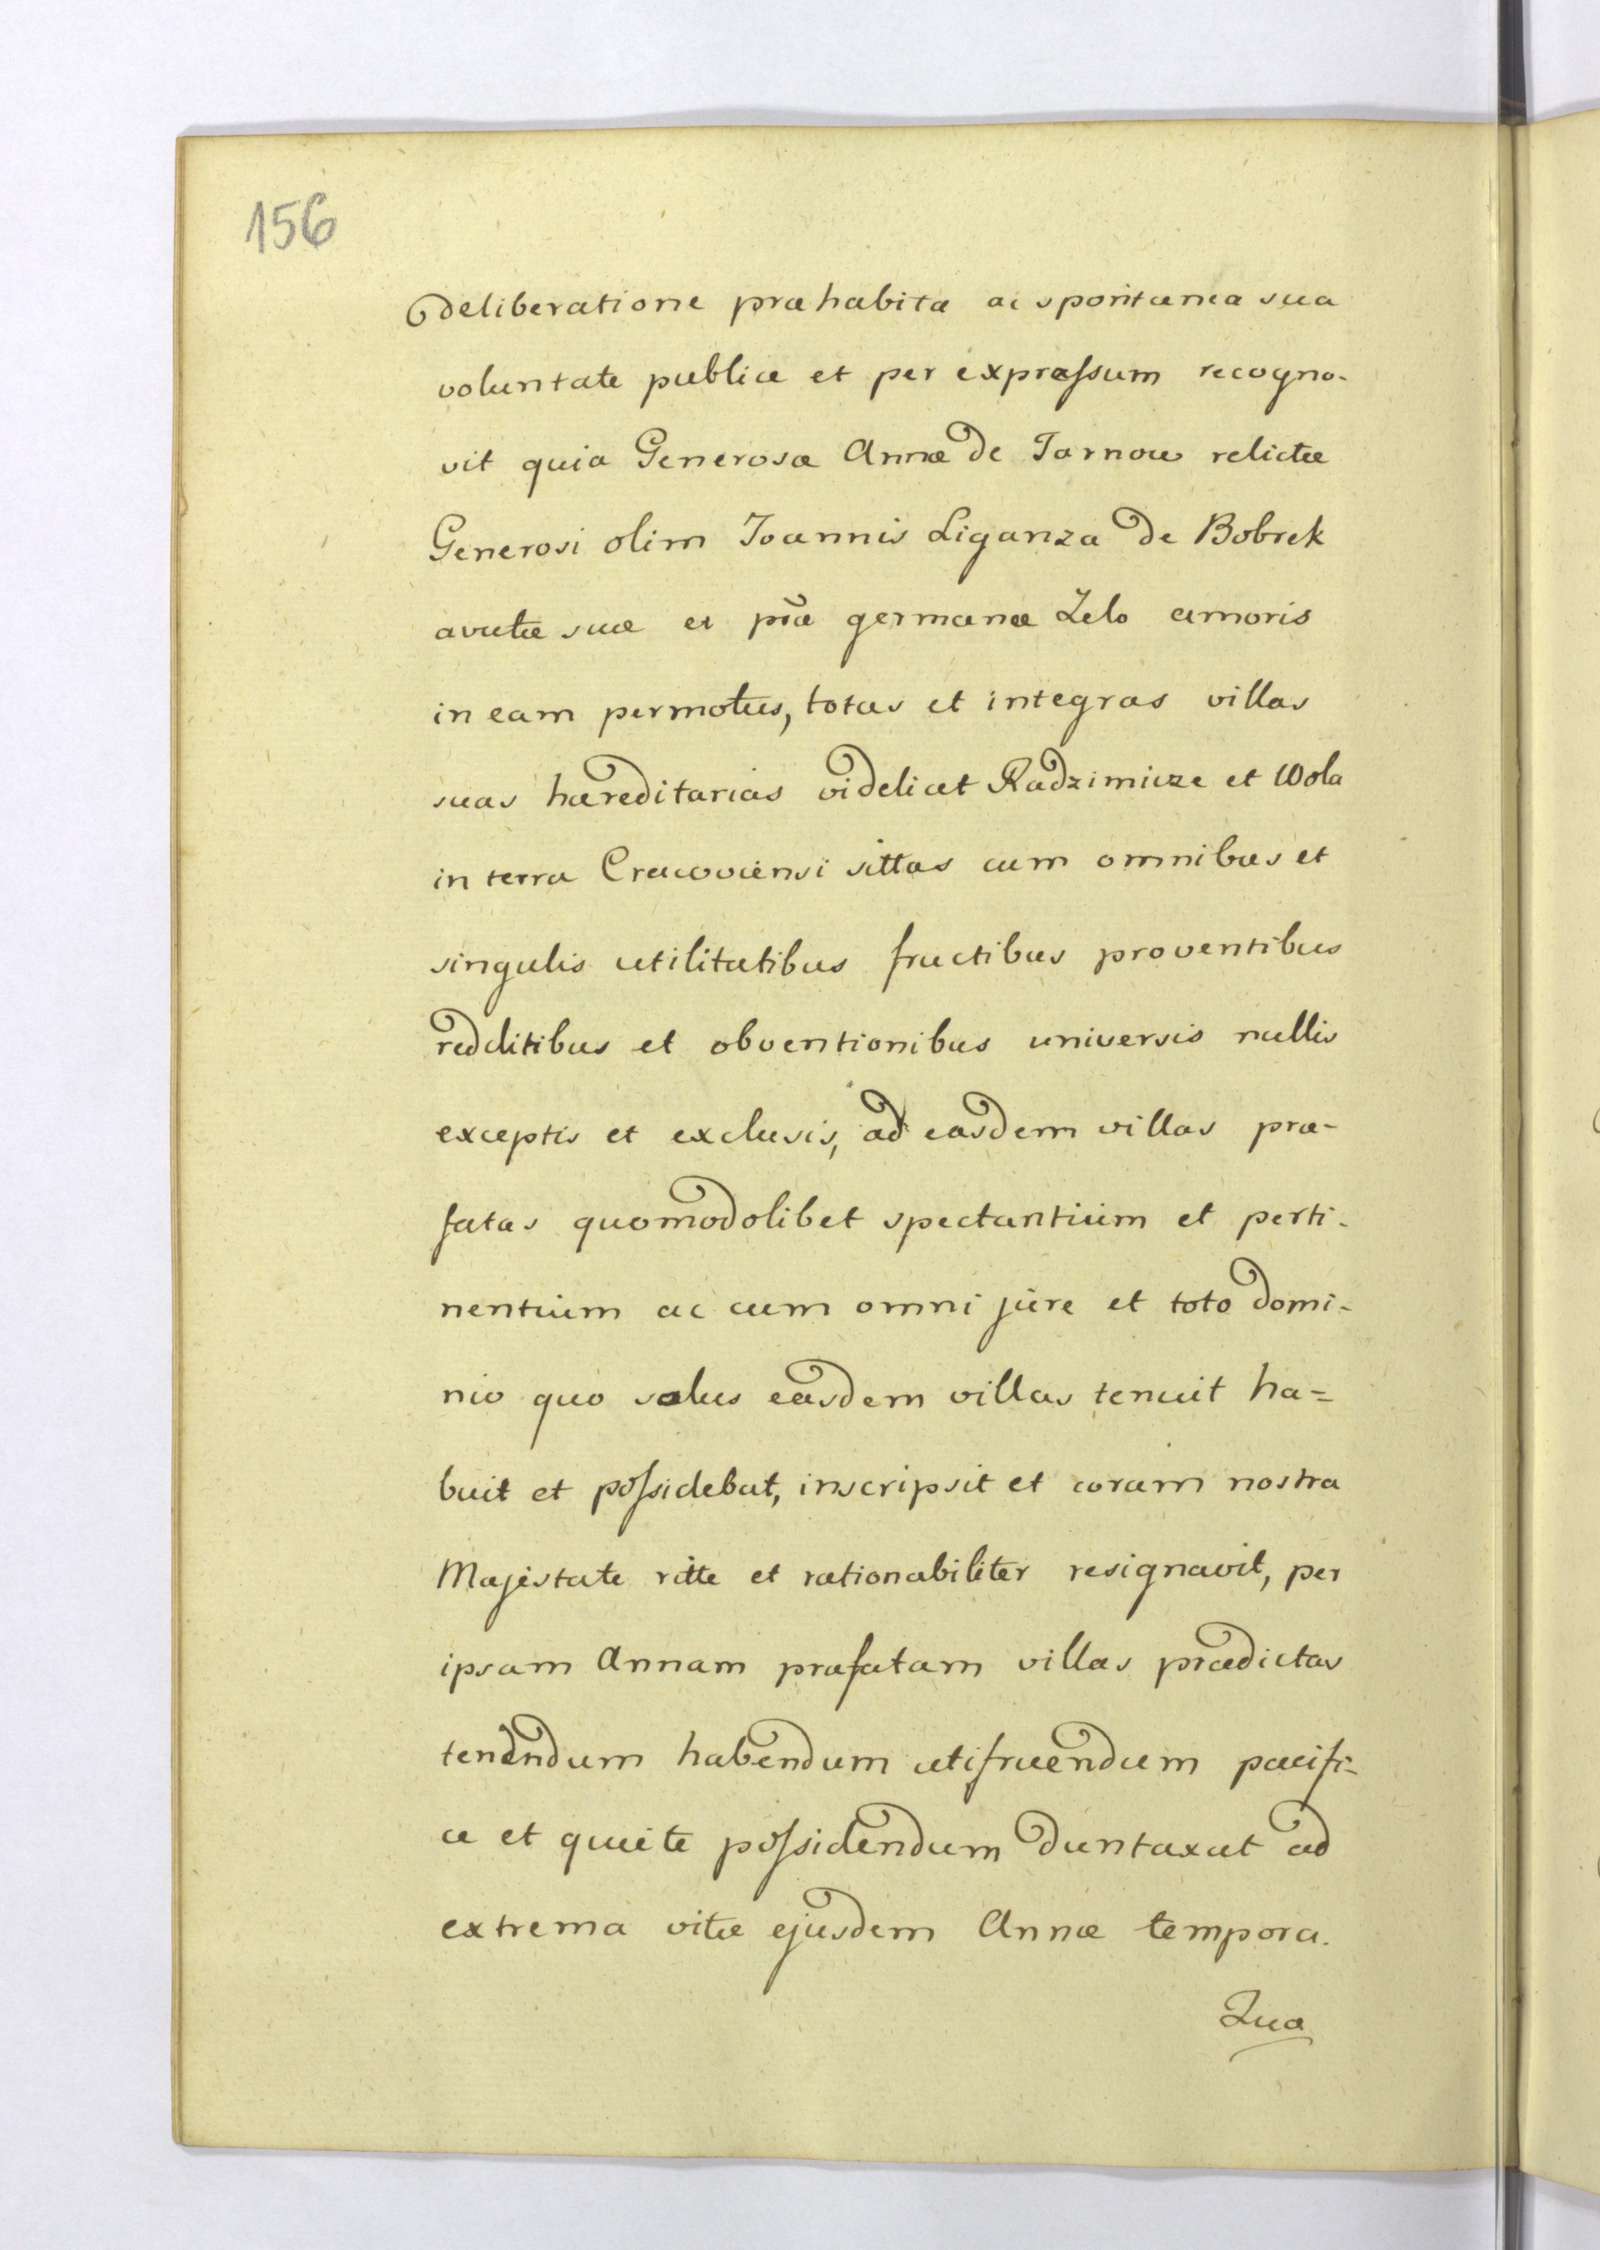 156
deliberatione præhabita ac spontanea sua
voluntate publice et per expraessum recogno-
vit quia Generosæ Annæ de Tarnow relictæ
Generosi olim Joannis Liganza de Bobrek
avutæ suæ et pīæ germanæ Zelo amoris
in eam permotus, totas et integras villas
suas hæreditarias videlicet Radzimicze et Wola
in terra Cracoviensi sittas cum omnibus et
singulis utilitatibus fructibus proventibus
redditibus et obventionibus universis nullis
exceptis et exclusis, ad easdem villas præ-
fatas quomodolibet spectantium et perti-
nentium ac cum omni jure et toto domi-
nio quo solus easdem villas tenuit ha=
buit et possidebat, inscripsit et coram nostra
Majestate ritte et rationabiliter resignavit, per
ipsam Annam præfatam villas prædictas
tenendum habendum utifruendum pacifi=
ce et quiete possidendum duntaxat ad
extrema vitæ ejusdem Annæ tempora.
Qua